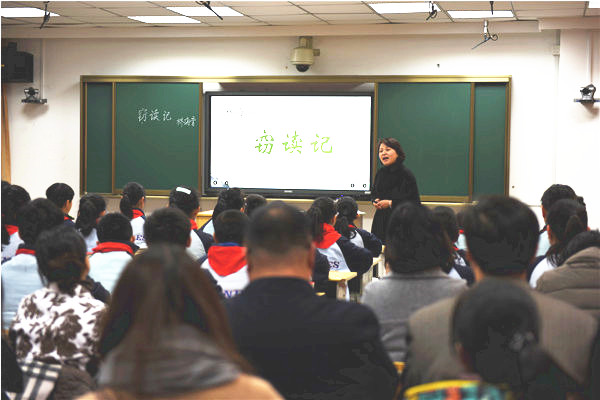 窃读记 林海音
窃读记